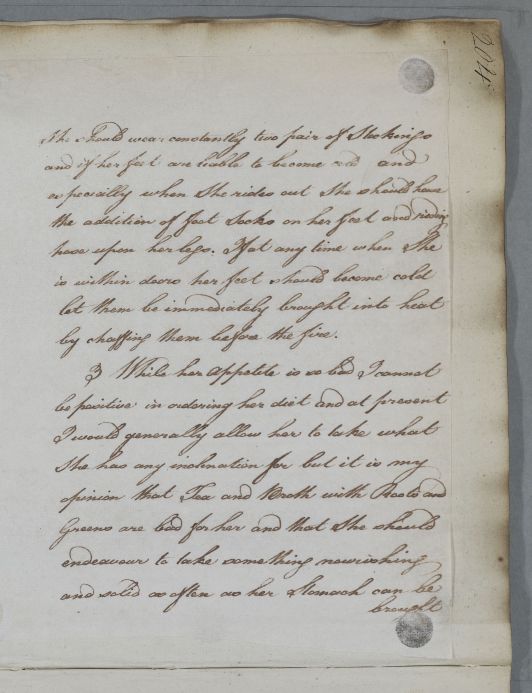 204
She should wear constantly two pair of Stockings
and if her feet are liable to become cold and
especially when She rides out She should have
the addition of feet Socks on her feet and riding
hose upon her legs. If at any time when She
is within doors her feet should become cold
let them be immediately brought into heat
by chaffing them before the fire.
3 While her Appetite is so bad I cannot
be positive in ordering her diet and at present
I would generally allow her to take what
She has any inclination for but it is my
opinion that Tea and Broth with Roots and
Greens are bad for her and that She should
endeavour to take something nourishing
and solid as often as her Stomach can be
brought